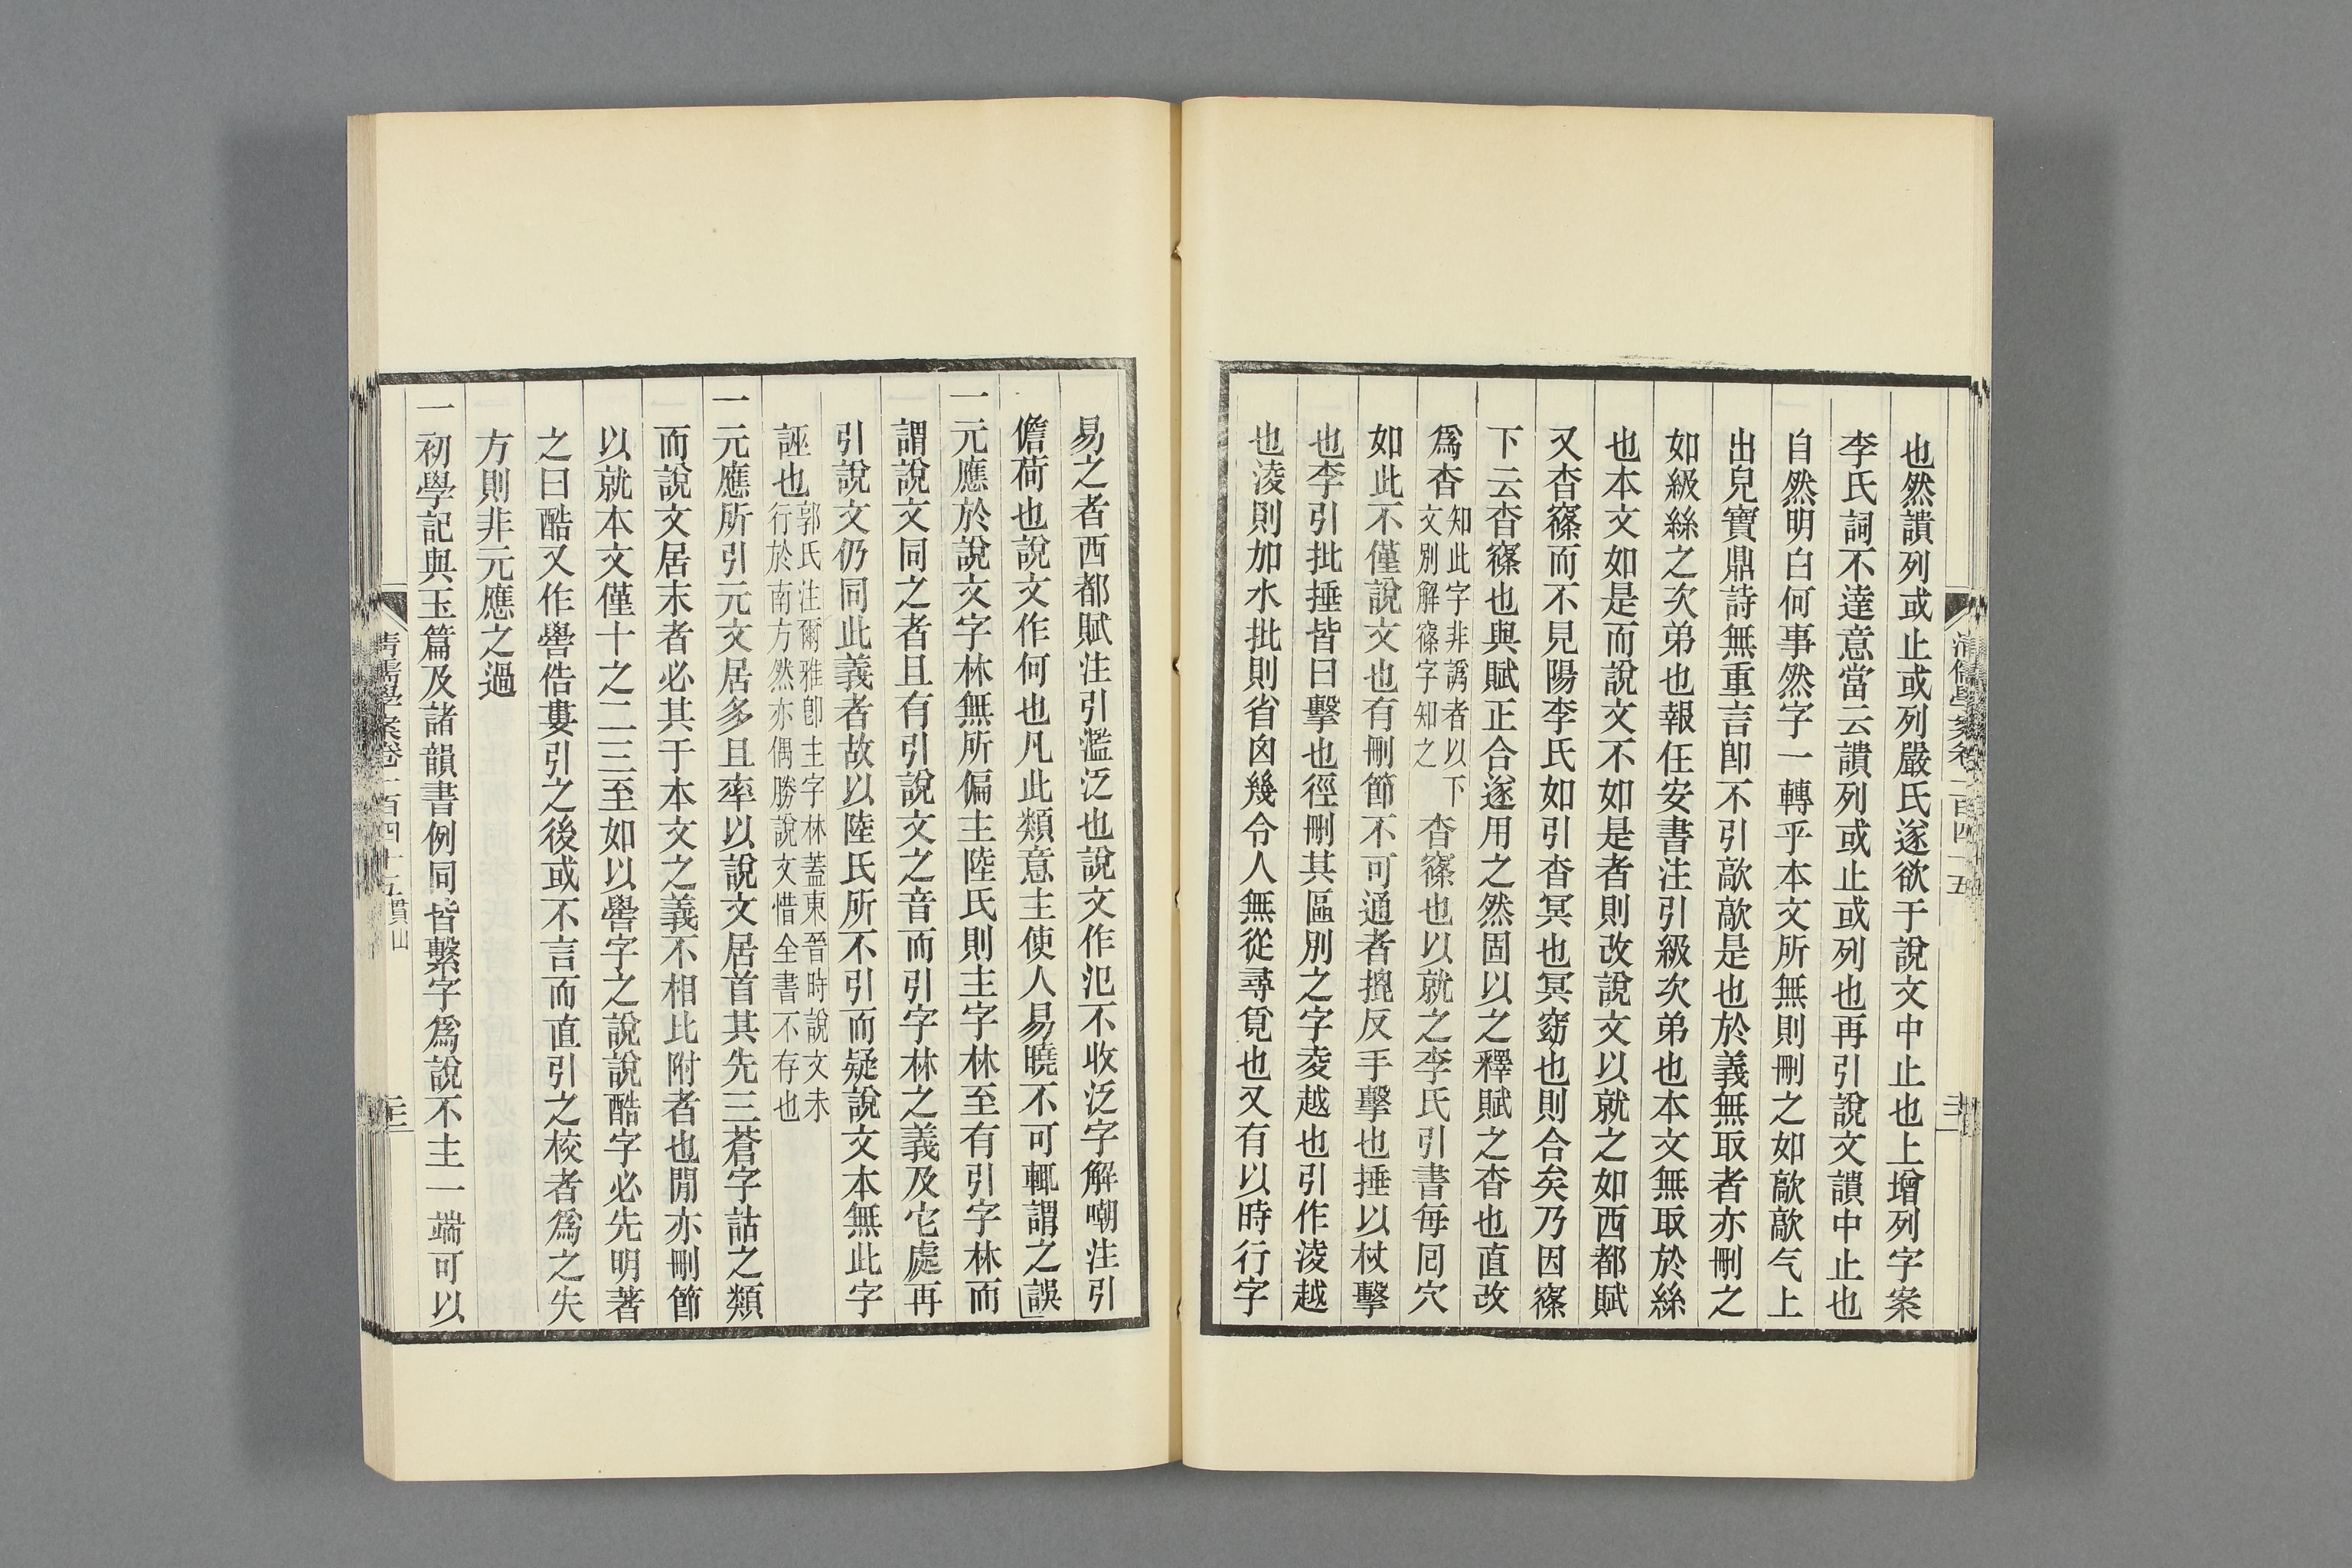 也然讃列或止或列嚴氏遂欲于說文中止也上增列字案
李氏詞不達意當云讃列或止或列也再引說文讃中止也
自然明白何事然字一轉乎本文所無則刪之如歊歊气上
出皃寶鼎詩無重言卽不引歊歊是也於義無取者亦刪之
如級絲之次弟也報任安書注引級次弟也本文無取於絲
也本文如是而說文不如是者則改說文以就之如西都賦
又杳窱而不見陽李氏如引杳冥也冥窈也則合矣乃因窱
下云杳窱也與賦正合遂用之然固以之釋賦之杳也直改
爲杳知此字非譌者以下文別解窱字知之杳窱也以就之李氏引書每囘穴
如此不僅說文也有刪節不可通者㧪反手擊也捶以杖擊
也李引批捶皆曰擊也徑刪其區別之字夌越也引作淩越
也淩則加水批則省囟幾令人無從尋覓也又有以時行字
易之者西都賦注引濫泛也說文作氾不收泛字解嘲注引
儋荷也說文作何也凡此類意主使人易曉不可輒謂之誤
一元應於說文字林無所偏主陸氏則主字林至有引字林而
謂說文同之者且有引說文之音而引字林之義及它處再
引說文仍同此義者故以陸氏所不引而疑說文本無此字
誣也郭氏注爾雅卽主字林蓋東晉時說文未行於南方然亦偶勝說文惜全書不存也
一元應所引元文居多且率以說文居首其先三蒼字詁之類
而說文居末者必其于本文之義不相比附者也閒亦刪節
以就本文僅十之二三至如以嚳字之說說酷字必先明著
之曰酷又作嚳俈婁引之後或不言而直引之校者爲之失
方則非元應之過
一初學記與玉篇及諸韻書例同皆繫字爲說不主一端可以
清儒學案卷一百四十五 貫山